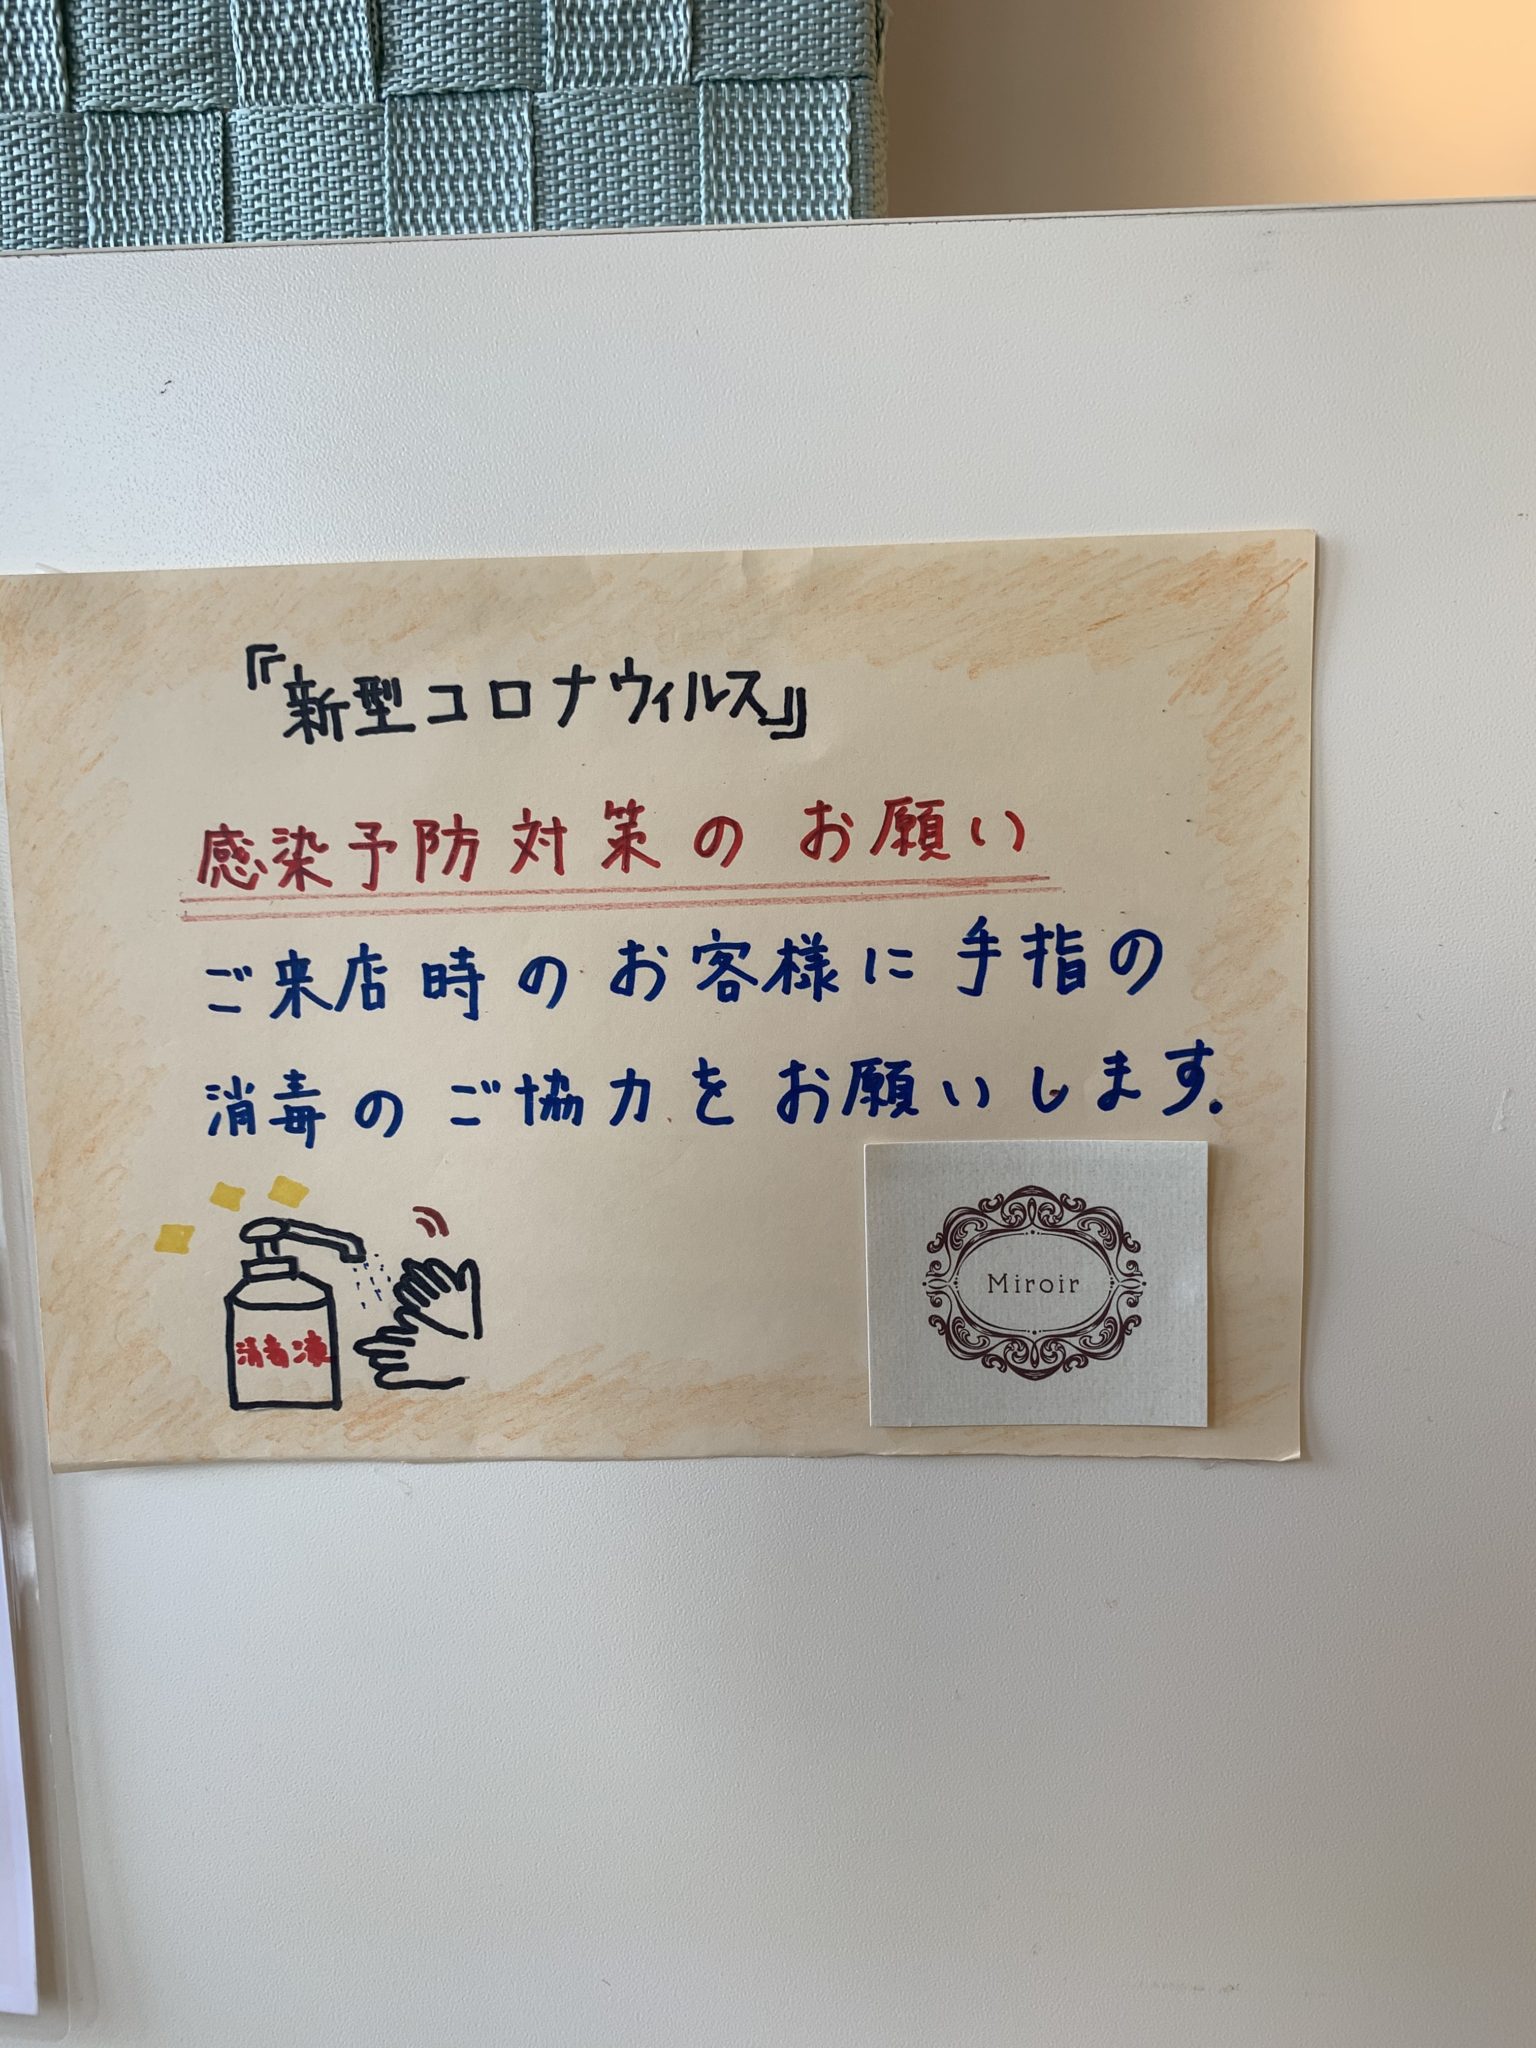 『新型コロナウィルス』
感染予防対策のお願い
ご来店時のお客様に手指の
消毒のご協力をお願いします.
消毒液
Miroir